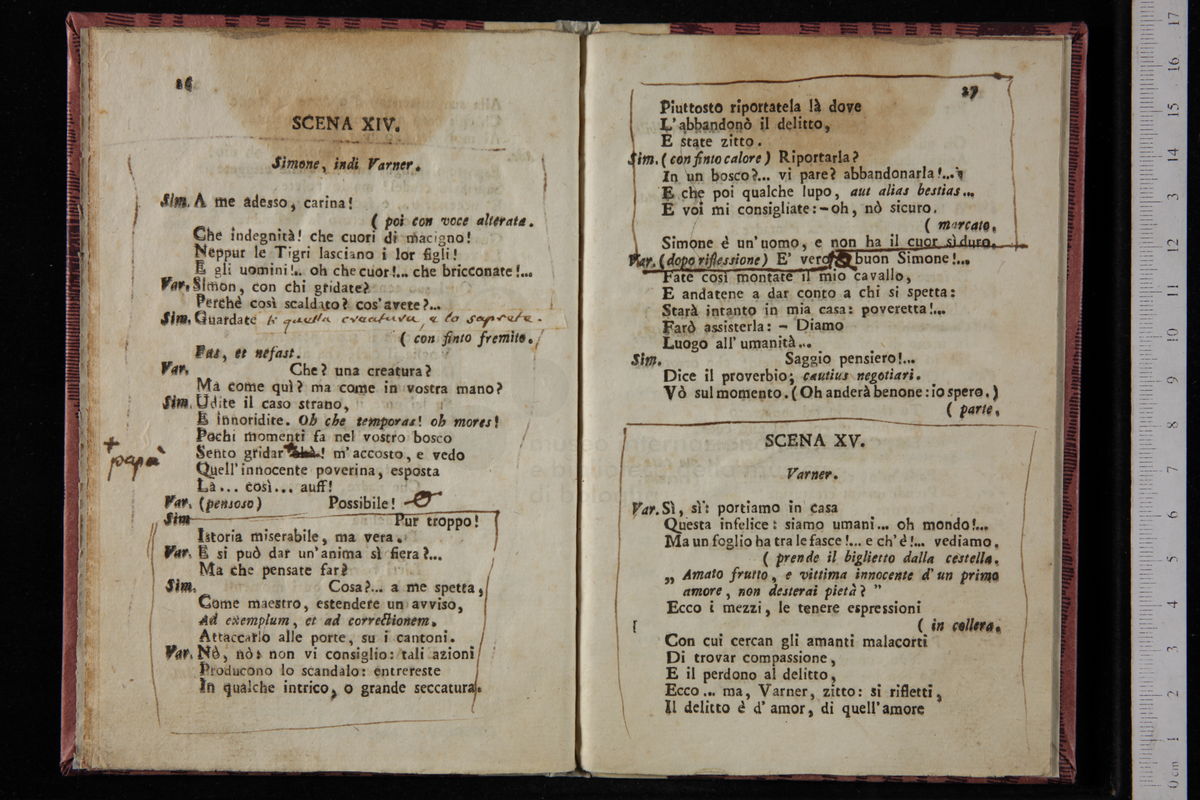 26
SCENA XIV.
Simone, indi Varner.
Sim. A me adesso, carina!
( poi con voce alterata.
Che indegnità! che cuori di macigno!
Neppur le Tigri lasciano i lor figli!
E gli uomini!.. oh che cuor!... che bricconate!...
Var. Simon, con chi gridate?
Perchè così scaldato? cos'avete?...
Sim. Guardate quella creatura, e lo saprete.
( con finto fremito.
Fas, et nefast.
Var. Che? una creatura?
Ma come quì? ma come in vostra mano?
Sim. Udite il caso strano,
E innoridite. Oh che temporas! oh mores!
Pochi momenti fa nel vostro bosco
+ papà
Sento gridar + ! m'accosto, e vedo
Quell'innocente poverina, esposta
Là... così... auff!
Var. (pensoso) Possibile!
Sim Pur troppo!
Istoria miserabile, ma vera.
Var. E si può dar un'anima sì fiera?...
Ma che pensate far?
Sim. Cosa?... a me spetta,
Come maestro, estendere un avviso,
Ad exemplum, et ad correctionem.
Attaccarlo alle porte, su i cantoni.
Var. Nò, nò: non vi consiglio: tali azioni
Producono lo scandalo: entrereste
In qualche intrico, o grande seccatura.
27
Piuttosto riportatela là dove
L'abbandonò il delitto,
E state zitto.
Sim. (con finto calore) Riportarla?
In un bosco?... vi pare? abbandonarla!...
E che poi qualche lupo, aut alias bestias...
E voi mi consigliate:-oh, nò sicuro.
( marcato.
Simone è un'uomo, e non ha il cuor sì duro.
Var. (dopo riflessione) E' vero buon Simone!...
Fate così montate il mio cavallo,
E andatene a dar conto a chi si spetta:
Starà intanto in mia casa: poveretta!...
Farò assisterla: - Diamo
Luogo all'umanità...
Sim. Saggio pensiero!...
Dice il proverbio; cautius negotiari.
Vò sul momento. (Oh anderà benone: io spero.)
( parte.
SCENA XV.
Varner.
Var. Sì, sì: portiamo in casa
Questa infelice: siamo umani... oh mondo!...
Ma un foglio ha tra le fasce!... e ch'è!... vediamo.
( prende il biglietto dalla cestella.
„ Amato frutto, e vittima innocente d'un primo
amore, non desterai pietà? ”
Ecco i mezzi, le tenere espressioni
( in collera.
Con cui cercan gli amanti malacorti
Di trovar compassione,
E il perdono al delitto,
Ecco... ma, Varner, zitto: si rifletti,
Il delitto è d'amor, di quell'amore
0 cm 1 2 3 4 5 6 7 8 9 10 11 12 13 14 15 16 17